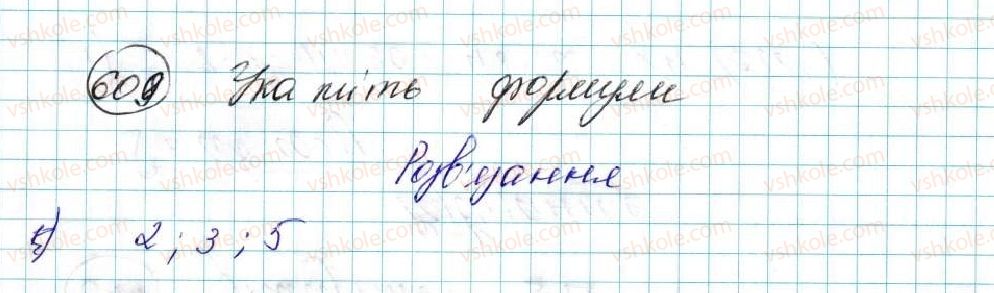 609 Укажіть формули
Розв'язання
5) 2; 3; 5